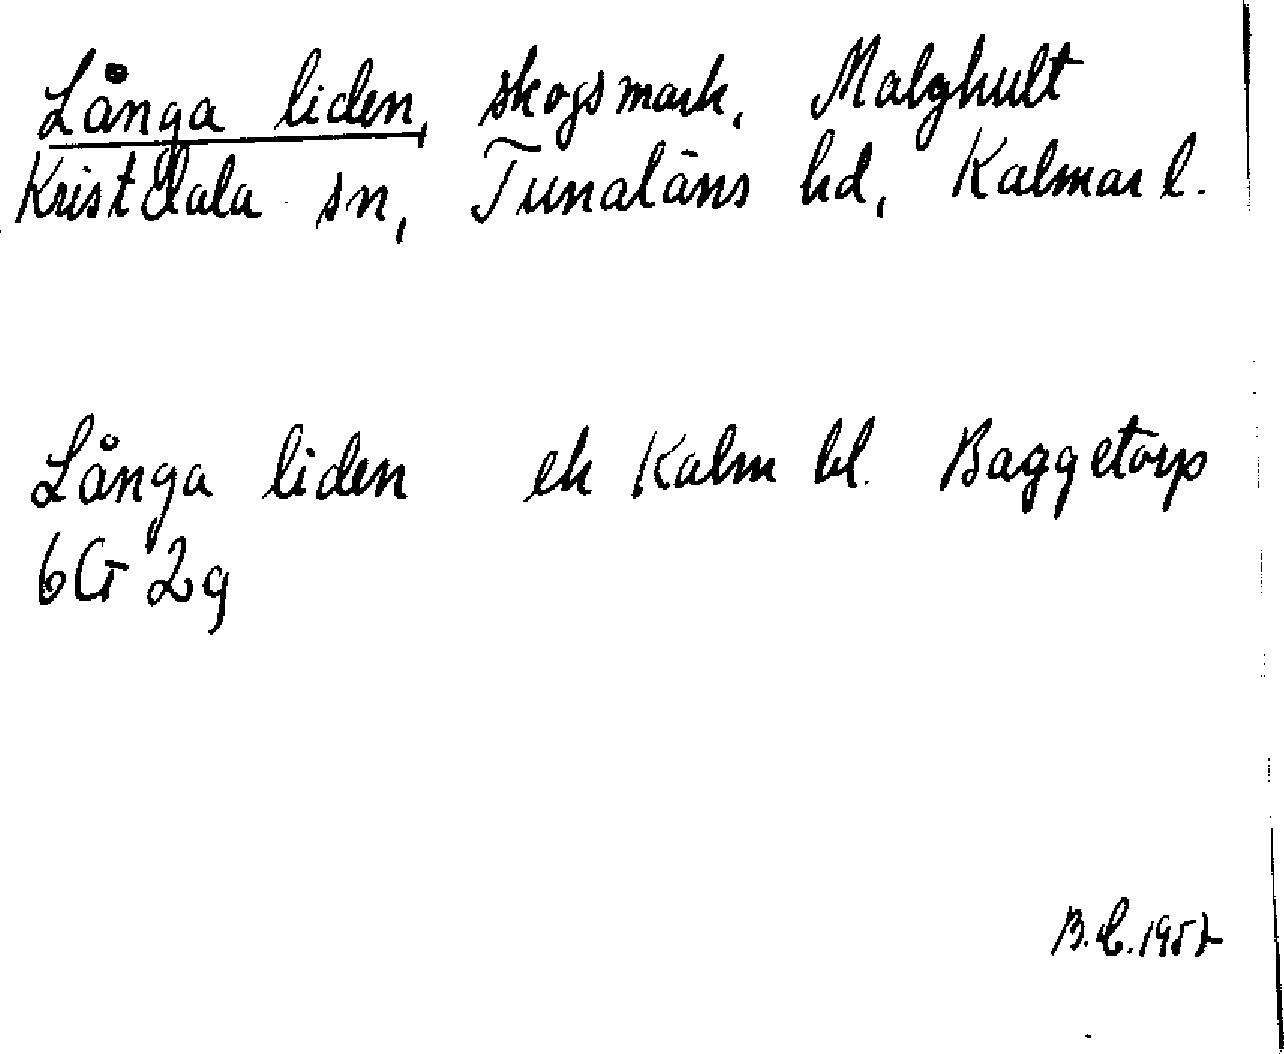 Långa liden, skogsmark, Malghult
Kristdala sn, Tunaläns hd, Kalmar l.
Långa liden ek Kalm bl. Baggetorp
6G 2g
B.C. 1952